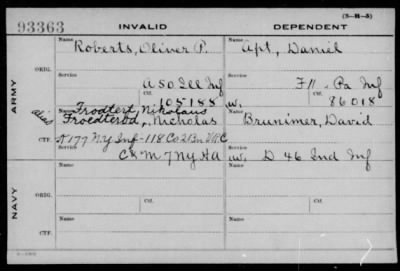 (3-M-5)
93363 INVALID DEPENDENT
ARMY
NAVY
ORIG.
Name Roberts, Oliver P.
Name Apt, Daniel
Service A 50 Ill Inf
Service F 11 Pa Inf
Ctf. 105188
Ctf. w. 86018
CTF.
alias
Name Frodtert, Nikolaus
Froedterod, Nicholas
Name Brunimer, David
177 NY Inf - 118 Co 2 Bn VRC
Service C & M 7 NY HA
Service w. D 46 Ind Inf
ORIG.
Name
Name
Service
Service
Ctf.
Ctf.
CTF.
Name
Name
Service
Service